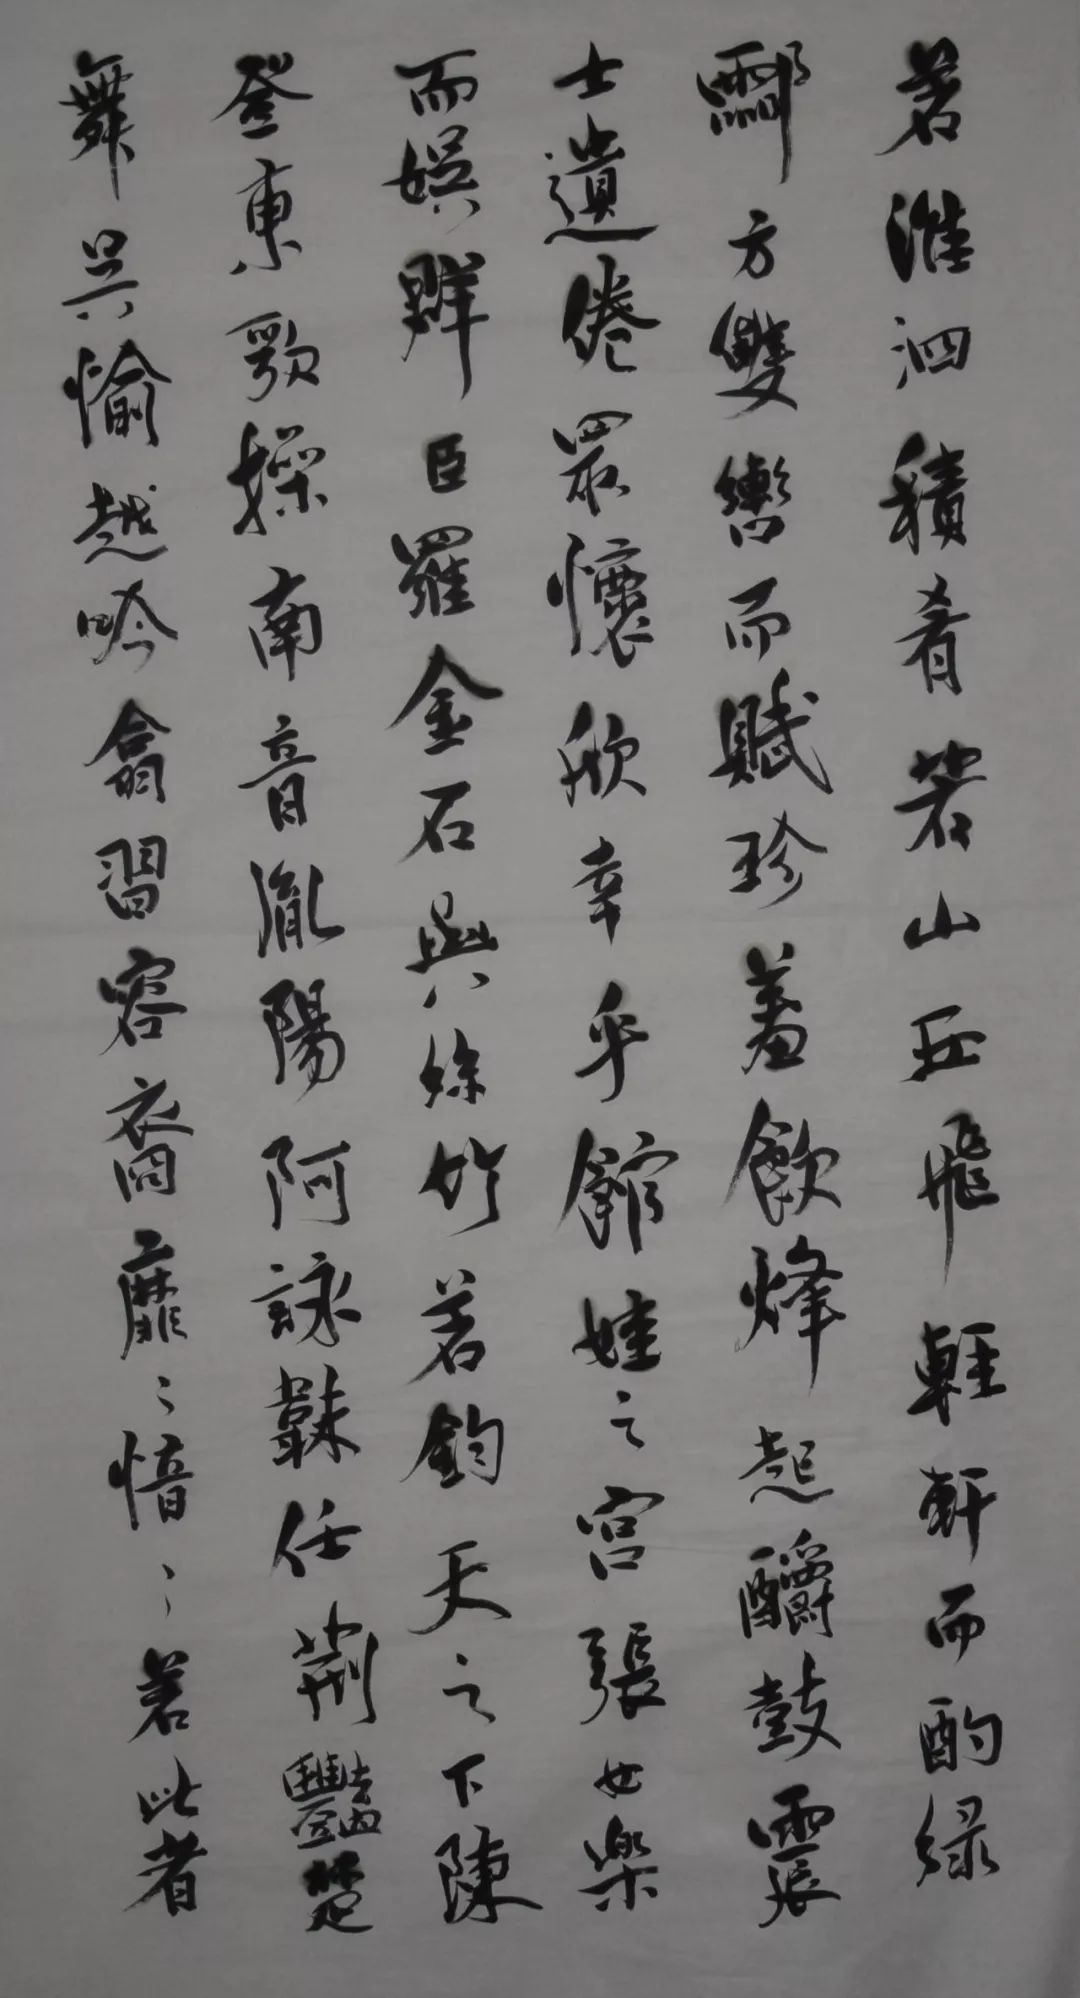 若淮泗積肴若山丘飛輕軒而酌緑
酃方雙轡而賦珍羞飲烽起釂鼓震
士遺倦眾懷欣幸乎館娃之宮張女樂
而娛群臣羅金石與絲竹若鈞天之下陳
登東歌操南音胤陽阿詠韎任荊豔楚
舞吳愉越吟翕習容裔靡〻愔〻若此者